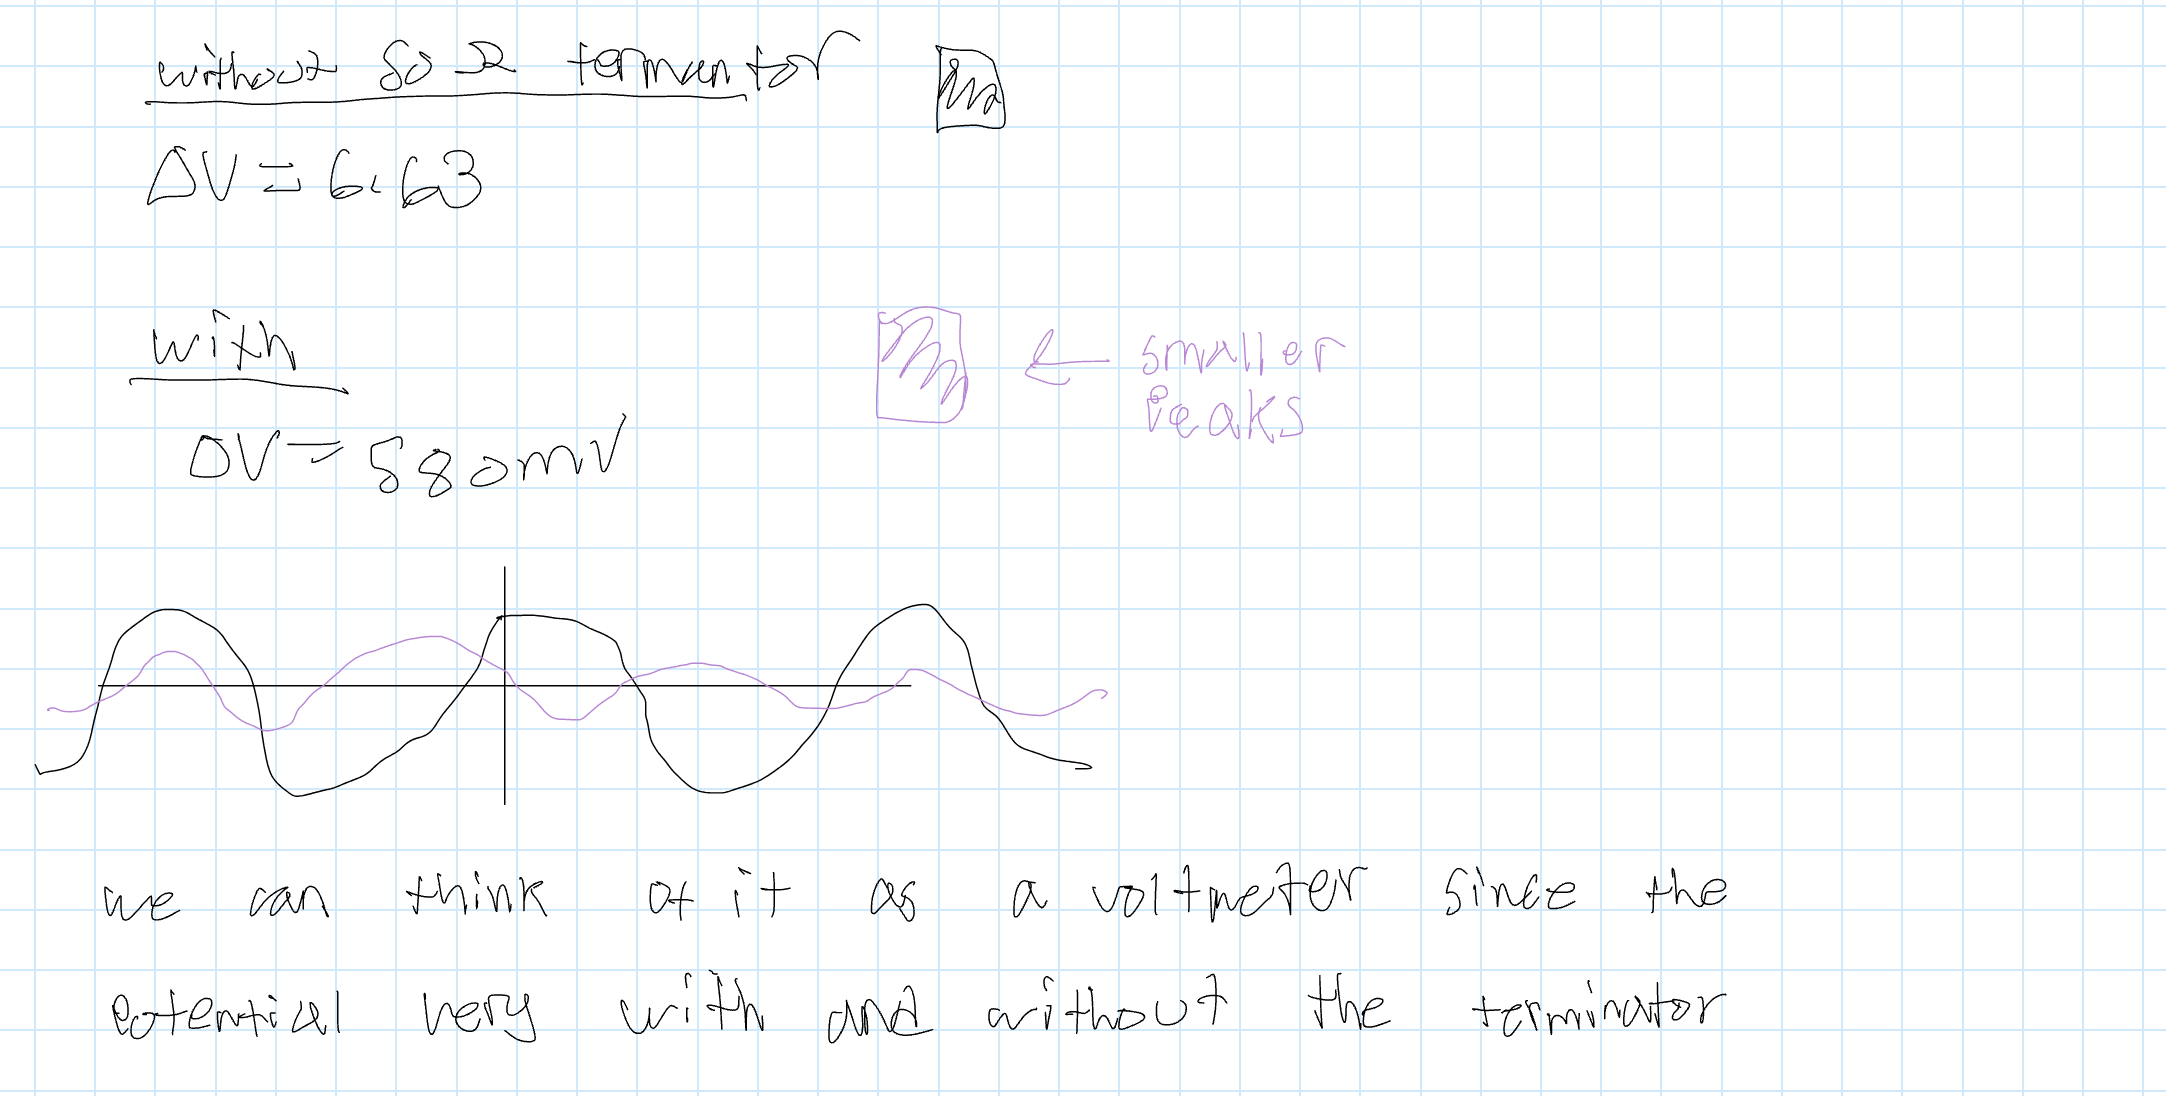 without 50 Ω termantor
ΔV = 6.63
with
ΔV = 580mV
smaller
Peaks
we can think of it as a voltmeter since the
potential very with and without the terminator